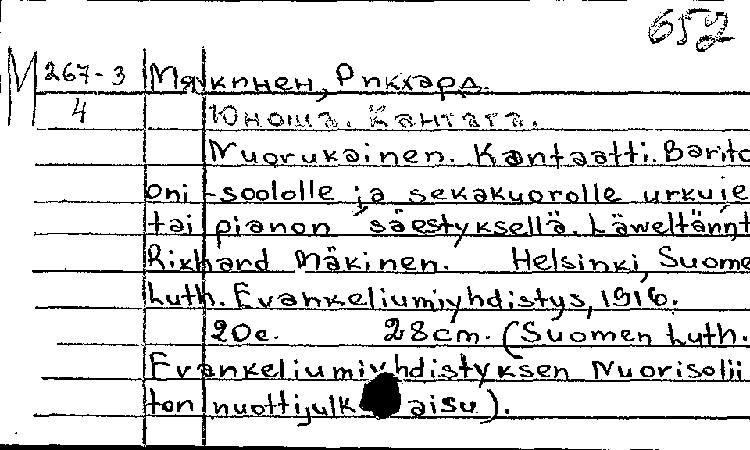 652
М 267-3 Мякинен, Рикхард.
4 Юноша. Кантата.
Nuorukainen. Kantaatti. Barito
oni-soololle ja sekakuorolle urkuje
tai pianon säestyksellä. Läweltännt
Rikhard Mäkinen. Helsinki, Suome
Luth. Evankeliumiyhdistys, 1916.
20c. 28cm. (Suomen Luth.
Evankeliumiyhdistyksen Nuorisolii
ton nuottijulkaisu).